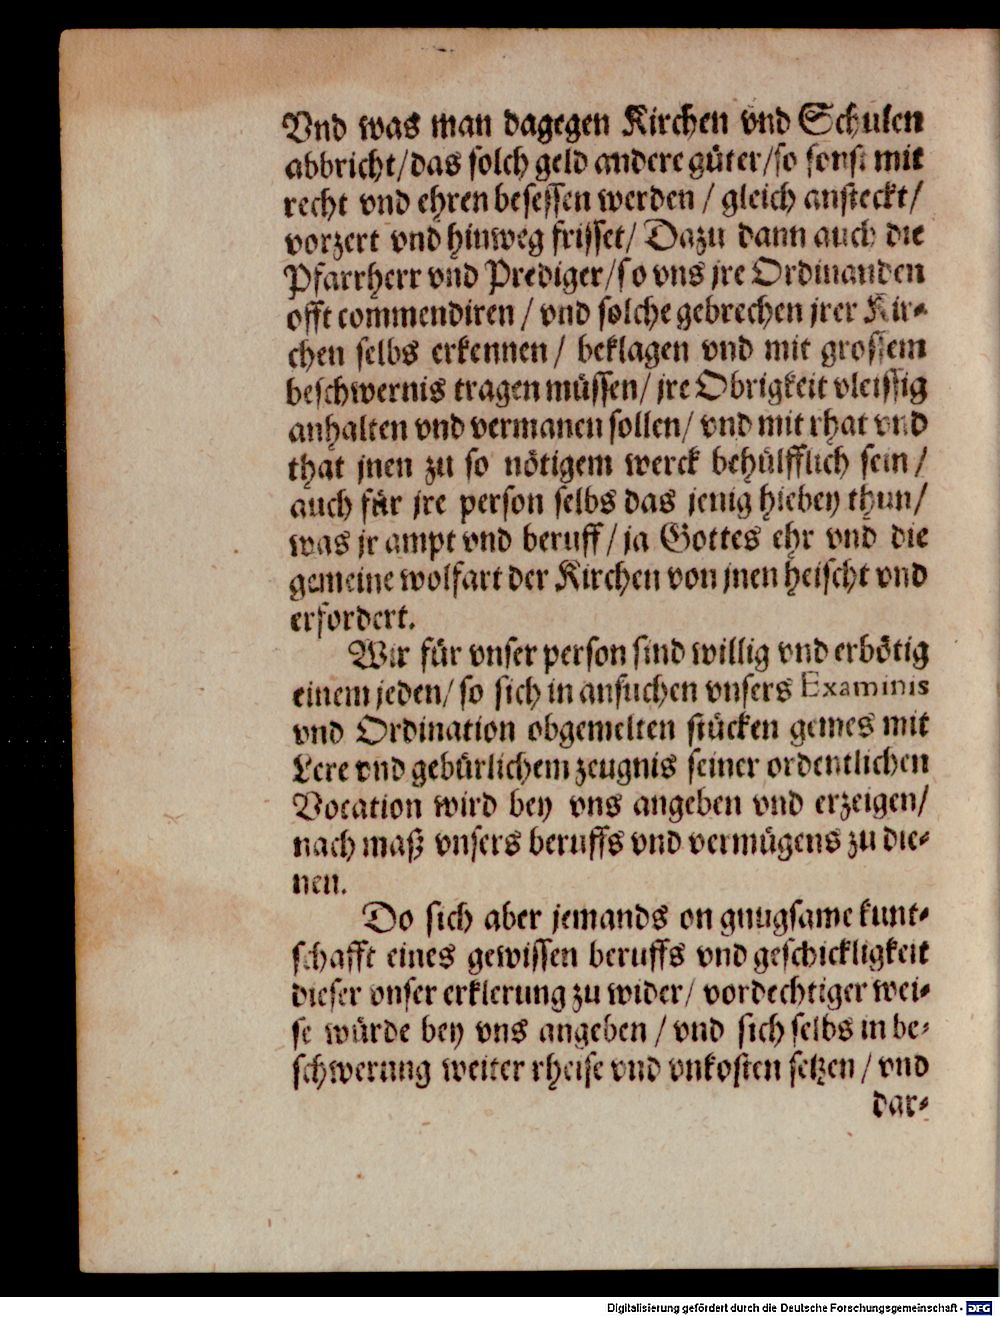 Vnd was man dagegen Kirchen vnd Schulen
abbricht/das solch geld andere güter/so sonst mit
recht vnd ehren besessen werden / gleich ansteckt/
vorzert vnd hinweg frisset/ Dazu dann auch die
Pfarrherr vnd Prediger/so vns jre Ordinanden
offt commendiren / vnd solche gebrechen jrer Kir-
chen selbs erkennen/ beklagen vnd mit grossem
beschwernis tragen müssen/ jre Obrigkeit vleissig
anhalten vnd vermanen sollen/ vnd mit rhat vnd
that jnen zu so nötigem werck behülfflich sein/
auch für jre person selbs das jenig hiebey thun/
was jr ampt vnd beruff/ja Gottes ehr vnd die
gemeine wolfart der Kirchen von jnen heischt vnd
erfordert.
Wir für vnser person sind willig vnd erbötig
einem jeden/ so sich in ansuchen vnsers Examinis
vnd Ordination obgemelten stücken gemes mit
Lere vnd gebürlichem zeugnis seiner ordentlichen
Vocation wird bey vns angeben vnd erzeigen/
nach maß vnsers beruffs vnd vermügens zu die-
nen.
Do sich aber jemands on gnugsame kunt-
schafft eines gewissen beruffs vnd geschickligkeit
dieser vnser erklerung zu wider/ vordechtiger wei-
se würde bey vns angeben / vnd sich selbs in be-
schwerung weiter rheise vnd vnkosten setzen / vnd
dar-
Digitalisierung gefördert durch die Deutsche Forschungsgemeinschaft - DFG